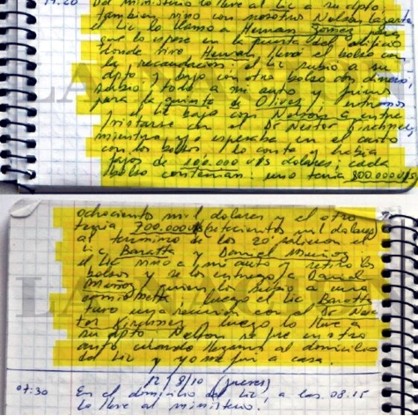 19:20 Del ministerio lo llevé al Lic a su dpto
también vino con nosotros Nelson Lazarte
el Lic lo llamó a Hernan Gomez para
que lo espere en la puerta del edificio
donde vive Hernan, llevó el bolso con
la recaudación, el Lic subió a su
dpto y bajó con otro bolso con dinero,
subió todo a mi auto y fuimos
para la quinta de Olivos, entramos
el Lic bajó con Nelson a entre
vistarse con el Dr Nestor Kirchner,
mientras yo esperaba en el auto
con los bolsos, lo conté y había
fajos de 100.000 u$s dolares, cada
bolso contenían uno tenía 800.000 u$s
ochocientos mil dolares y el otro
tenía 700.000 u$s setecientos mil dolares
al termino de los 20' salieron el
Lic Baratta y Daniel Muñoz
el Lic vino a mi auto y retiró los
bolsos y se los entregó a Daniel
Muñoz, quien los subió a una
camionetta, luego el Lic Baratta
tuvo una reunión con el Dr Nes
tor Kirchner y luego lo llevé a
su dpto, Nelson se fue en otro
auto cuando llegamos al domicilio
del Lic y yo me fui a casa.
12/8/10 (jueves)
07:30 En el domicilio del Lic, a las 08.15
lo llevé al ministerio.